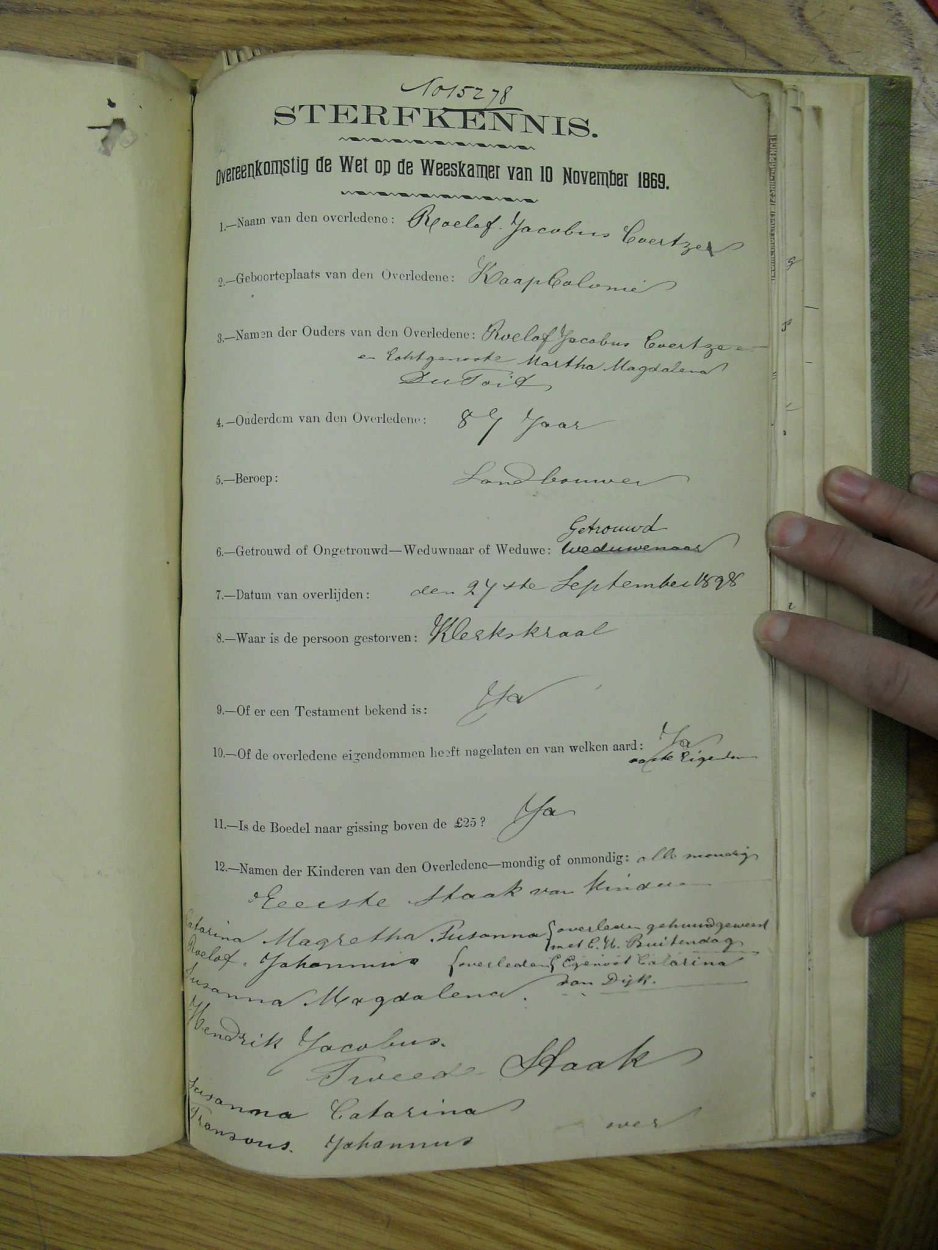 No 15278
STERFKENNIS.
Overeenkomstig de Wet op de Weeskamer van 10 November 1869.
1.—Naam van den overledene: Roelof Jacobus Coertzen
2.—Geboorteplaats van den Overledene: KaapColonie
3.—Namen der Ouders van den Overledene: Roelof Jacobus Coertze
en Echtgenoote Martha Magdalena
Du Toit
4.—Ouderdom van den Overledene: 87 Jaar
5.—Beroep: Landbouwer
6.—Getrouwd of Ongetrouwd—Weduwnaar of Weduwe: Getrouwd
weduwenaar
7.—Datum van overlijden: den 27ste September 1898
8.—Waar is de persoon gestorven: Klerkskraal
9.—Of er een Testament bekend is: Ja
10.—Of de overledene eigendommen heeft nagelaten en van welken aard: Ja
vaste Eigendom
11.—Is de Boedel naar gissing boven de £25? Ja
12.—Namen der Kinderen van den Overledene—mondig of onmondig: alle mondig
Eeerste Staak van Kinderen
Catarina Magretha Susanna {overleden gehuud geweest
met C. H. Buitendag
Roelof Johannus {overleden {Egenoot Catarina
van Dijk.
Susanna Magdalena.
Hendrik Jacobus.
Tweede Staak
Susanna Catarina
Fransous. Johannus
over